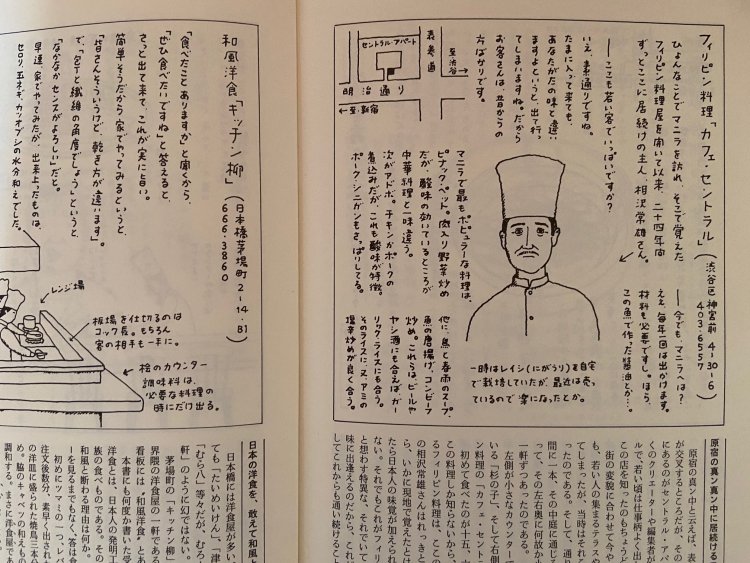 フィリピン料理「カフェ・セントラル」(渋谷区神宮前4-30-6 403・6557)
ひょんなことでマニラを訪れ、そこで覚えた
フィリピン料理屋を開いて以来、二十四年間
ずっとここに居続けの主人、相沢常雄さん。
──ここも若い客でいっぱいですか?
いえ、素通りですね。
たまに入って来ても、
あなたがたの味と違い
ますよというと、出て行っ
てしまいますね。だから
お客さんは、昔からの
方ばかりです。
至渋谷
表参道
セントラル・アパート
明治通り
←至・新宿
──今でも、マニラへは?
ええ、毎年一回は出かけます。
材料も必要ですし。ほら、
この魚で作った醤油とか…。
マニラで最もポピュラーな料理は、
ピナックペット。肉入り野菜炒め
だが、酸味の効いているところが
中華料理と一味違う。
次がアドボ。チキンかポークの
煮込みだが、これも酸味が特徴。
ポーク・シニガンもさっぱりしてる。
他に、鳥と春雨のスープ、
魚の唐揚げ、コンビーフ
炒め。これらは、ビールや
ヤン酒にも合えば、ガー
リック・ライスにも合う。
そのライスに、又、アミの
塩辛炒めが良く合う。
一時はレイシ(にがうり)を自宅
で栽培していたが、最近は売っ
ているので楽になったとか。
原宿の真ン真ン中に居続ける
原宿の真ン中と云えば、表
が交叉するところだが、その
にあるのがセントラル・アパ
くのクリエーターや編集者が
ルで、若い頃は仕事柄よく出
この店を知ったのもちょうど
街の変貌に合わせて今や
も、若い人の集まるテラスや
てしまったが、当時はそれこ
ったのである。そして、通り
間に一本、その中庭に通じる
って、その左右奥に何故か
一軒ずつあったのである。
左側が小さなカウンター
いる「杉の子」、そして右側
ン料理の「カフェ・セントラ
初めて食べたのが十五、六
この料理しか知らないから、
フィリピン料理は、ここの
の相沢常雄さんはれっきと
ら、いかに現地で覚えたとは
たら日本人の味覚が加えられ
ない。それでもこれがフィリ
と想わす特異な、それでいて
味に出逢えるのだから、これ
してこれからも通い続けるこ
和風洋食「キッチン柳」(日本橋茅場町2-14 B1 666・3860)
「食べたことありますか」と聞くから、
「ぜひ食べたいですね」と答えると、
さっと出て来て、これが実に旨い。
簡単そうだから家でやってみるというと、
「皆さんそういうけど、乾き方が違います」
で、「包丁と繊維の角度でしょう」というと、
「なかなかセンスがよろしい」だと。
早速家でやってみたが、出来上ったものは、
セロリ、玉ネギ、カツオブシの水分和えでした。
レンジ場
板場を仕切るのは
コック長。もちろん
客の相手も一手に。
桧のカウンター
調味料は、
必要な料理の
時にだけ出る。
日本の洋食を、敢えて和風よ
日本橋には洋食屋が多い。
ても「たいめいけん」、「津
「むら八」等々だが、むろ
軒」のように幻ではない。
茅場町の「キッチン柳」
界隈の洋食屋の一軒である
看板には「和風洋食」とあ
本書にも何度か書いた受
洋食とは、日本人の発明工
族の食べものである。その
和風と断わる理由は何か。
を見るまでもなく、答は食
初めにツマミの一つ、レバ
注文後数分、素早く出され
の洋皿に盛られた焼鳥三本
め。脇のキャベツの和えもの
調和する。まさに洋食である